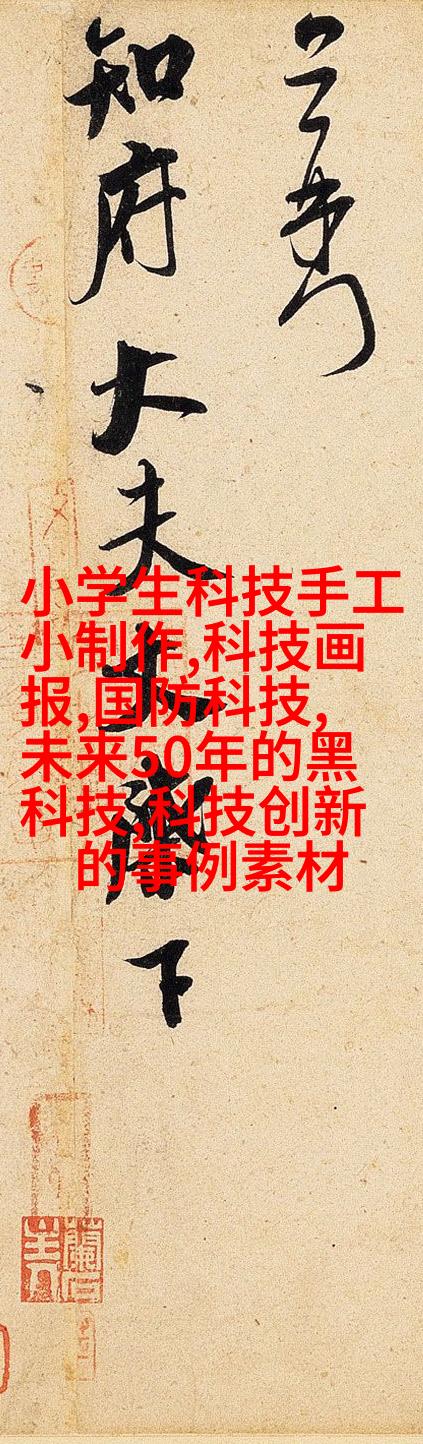 知府大夫下
小学生科技手工
小制作,科技画
报,国防科技,
未来50年的黑
科技,科技创新
的事例素材